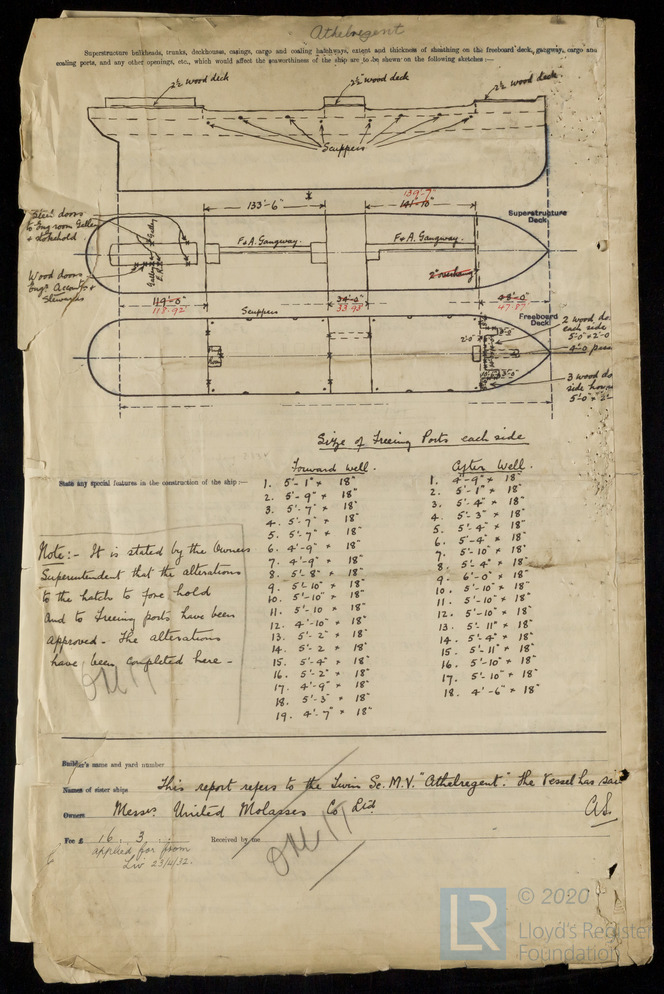 Athelregent
Superstructure bulkheads, trunks, deckhouses, casings, cargo and coaling hatchways, extent and thickness of sheathing on the freeboard deck, gangway, cargo and
coaling ports, and any other openings, etc., which would affect the seaworthiness of the ship are to be shown on the following sketches :—
2½ wood deck
2½" wood deck
2½ wood deck
Scuppers
133'-6"
139'-9"
141'-10"
Steel doors
to Eng. room Galley
& stokehold
Galley
F & A. Gangway.
F & A. Gangway.
Superstructure
Deck
2" overhang
Wood doors
Engs Accomts &
Stewards
119'-0"
118.92
Scuppers
34'-0"
33.93
48'-0"
47.8
Freeboard
Deck
2 wood do
each side
5'-0" × 2'-0
2'-0"
4'-0
3 wood do
side
5'-0" ×
Size of Freeing Ports each side
Forward Well.
After Well.
State any special features in the construction of the ship :—
1. 5'-1" × 18"
2. 5'-9" × 18"
3. 5'-7" × 18"
4. 5'-7 × 18"
5. 5'-7" × 18"
6. 4'-9" × 18"
7. 4'-9" × 18"
8. 5'-8" × 18"
9. 5'-10" × 18"
10. 5'-10" × 18"
11. 5'-10 × 18"
12. 4'-10" × 18"
13. 5'-2" × 18"
14. 5'-2 × 18"
15. 5'-4" × 18"
16. 5'-2" × 18"
17. 4'-9" × 18"
18. 5'-3" × 18"
19. 4'-7" × 18"
1. 4'-9" × 18"
2. 5'-1" × 18"
3. 5'-4" × 18"
4. 5'-3" × 18"
5. 5'-4" × 18"
6. 5'-4" × 18"
7. 5'-10" × 18"
8. 5'-4" × 18"
9. 6'-0" × 18"
10. 5'-10" × 18"
11. 5'-10" × 18"
12. 5'-10" × 18"
13. 5'-11" × 18"
14. 5'-4" × 18"
15. 5'-11" × 18"
16. 5'-10" × 18"
17. 5'-10" × 18"
18. 4'-6" × 18"
Note:- It is stated by the Owners
Superintendent that the alterations
to the hatch to fore hold
and to freeing ports have been
approved. The alterations
have been completed here -
Builder's name and yard number
Names of sister ships This report refers to the Twin Sc. M.V. "Athelregent". The Vessel has sai
Owners Messrs United Molasses Co Ltd
Fee £ 16 . 3 . Received by me
applied for from
Liv 23/4/32.
LR
© 2020
Lloyd's Register
Foundation